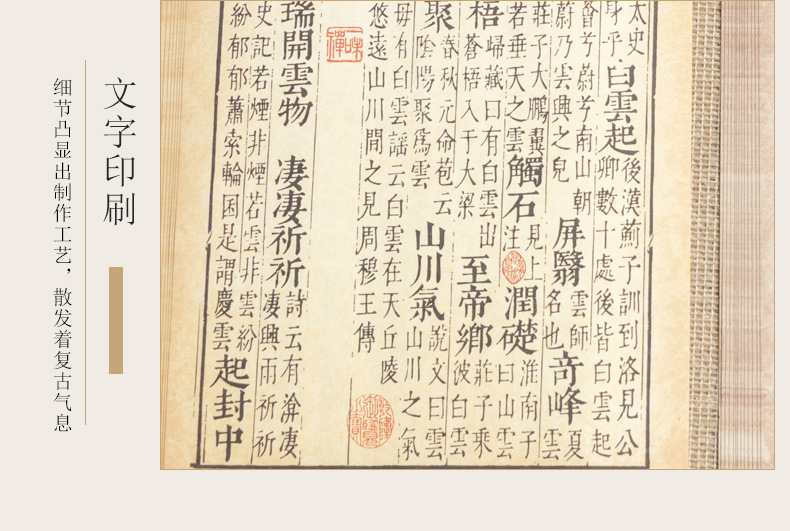 太史
身乎
白雲起
後漢薊子訓到洛見公
卿數十處後皆白雲起
曾兮蔚兮南山朝
蔚乃雲興之皃
屏翳
雲師
名也
奇峰
夏
雲
莊子大鵬翼
若垂天之雲
觸石
見上
注
潤礎
淮南子
曰山雲
梧
歸藏曰有白雲出
蒼梧入于大梁
至帝鄉
莊子乘
彼白雲
聚
春秋元命苞云
陰陽聚爲雲
山川氣
說文曰雲
山川之氣
毋有白雲謡云白雲在天丘陵
悠遠山川間之見周穆王傳
瑞開雲物
淒淒祈祈
詩云有渰淒
淒興雨祈祈
史記若煙非煙若雲非雲紛
紛郁郁蕭索輪囷是謂慶雲
起封中
文字印刷
细节凸显出制作工艺，散发着复古气息